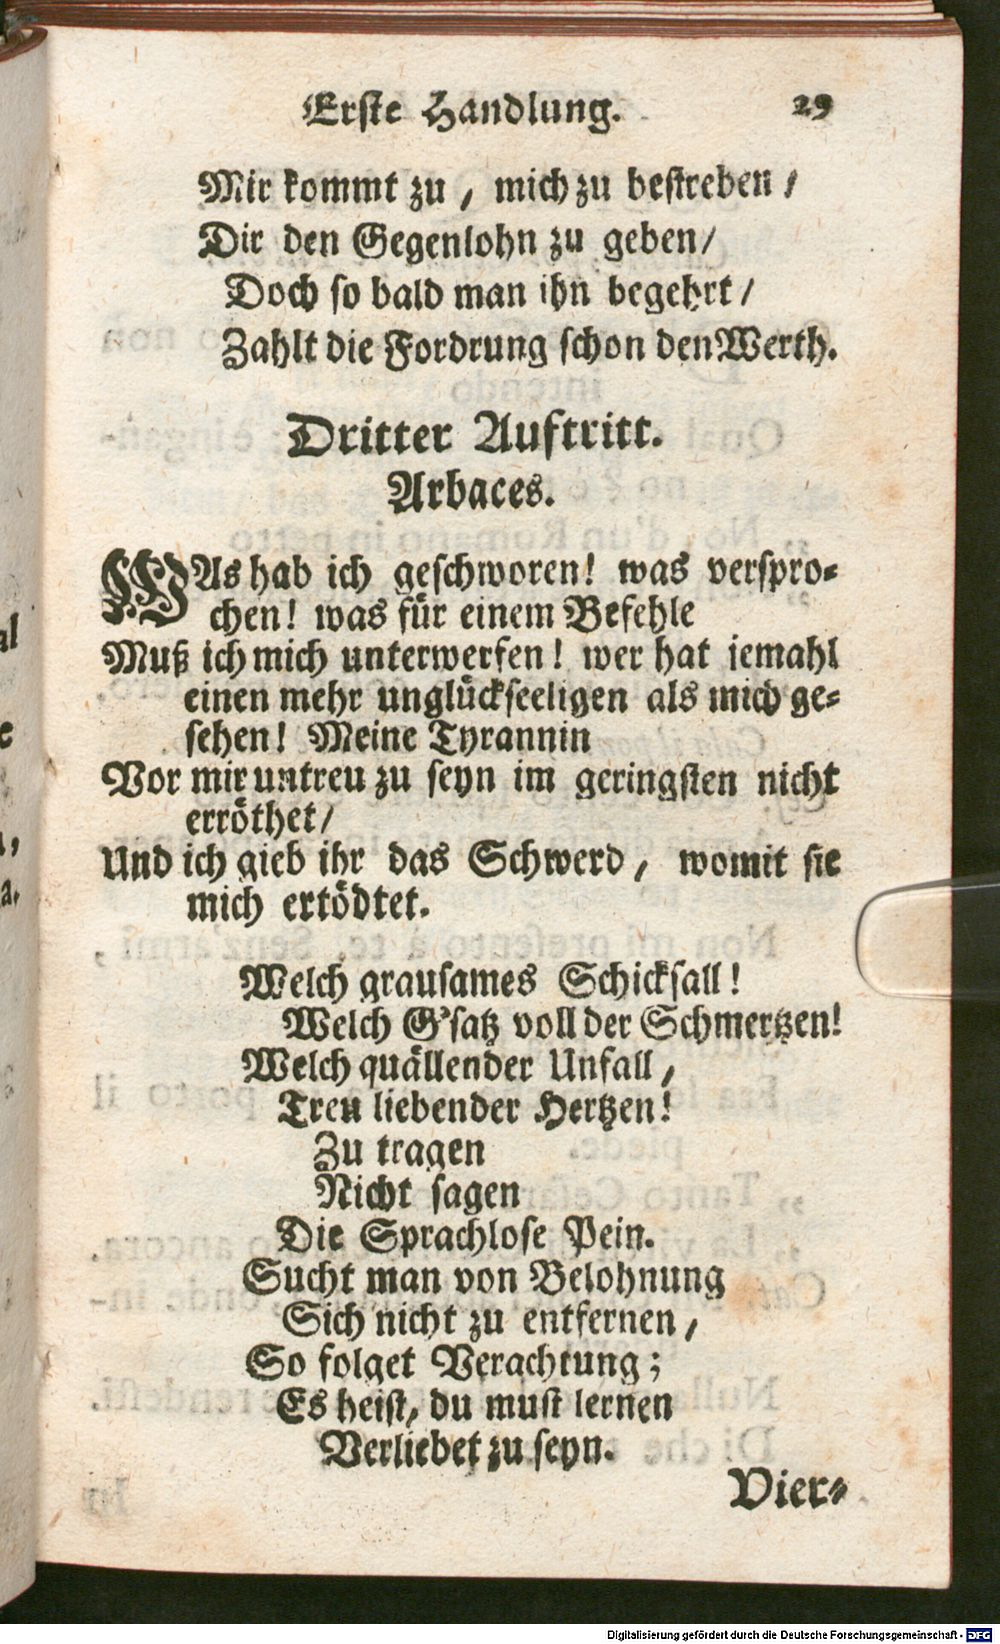 Erste Handlung. 29
Mir kommt zu, mich zu bestreben/
Dir den Gegenlohn zu geben/
Doch so bald man ihn begehrt/
Zahlt die Fordrung schon den Werth.
Dritter Auftritt.
Arbaces.
WAs hab ich geschworen! was verspro-
chen! was für einem Befehle
Muß ich mich unterwerfen! wer hat jemahl
einen mehr unglückseeligen als mich ge-
sehen! Meine Tyrannin
Vor mir untreu zu seyn im geringsten nicht
erröthet/
Und ich gieb ihr das Schwerd, womit sie
mich ertödtet.
Welch grausames Schicksall!
Welch G'satz voll der Schmertzen!
Welch quällender Unfall,
Treu liebender Hertzen!
Zu tragen
Nicht sagen
Die Sprachlose Pein.
Sucht man von Belohnung
Sich nicht zu entfernen,
So folget Verachtung;
Es heist, du must lernen
Verliebet zu seyn.
Vier-
Digitalisierung gefördert durch die Deutsche Forschungsgemeinschaft - DFG